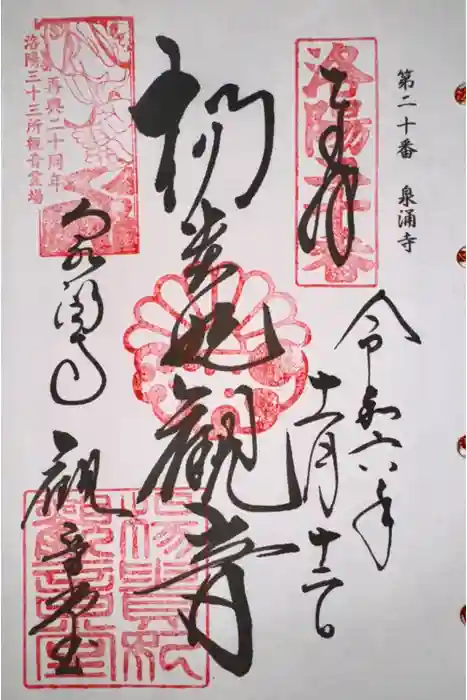 第二十番 泉涌寺
洛陽二十番
奉拝
令和六年
十二月十三日
楊貴妃観音
泉涌寺
観音堂
再興二十周年
洛陽三十三所観音霊場
楊貴妃
観音堂